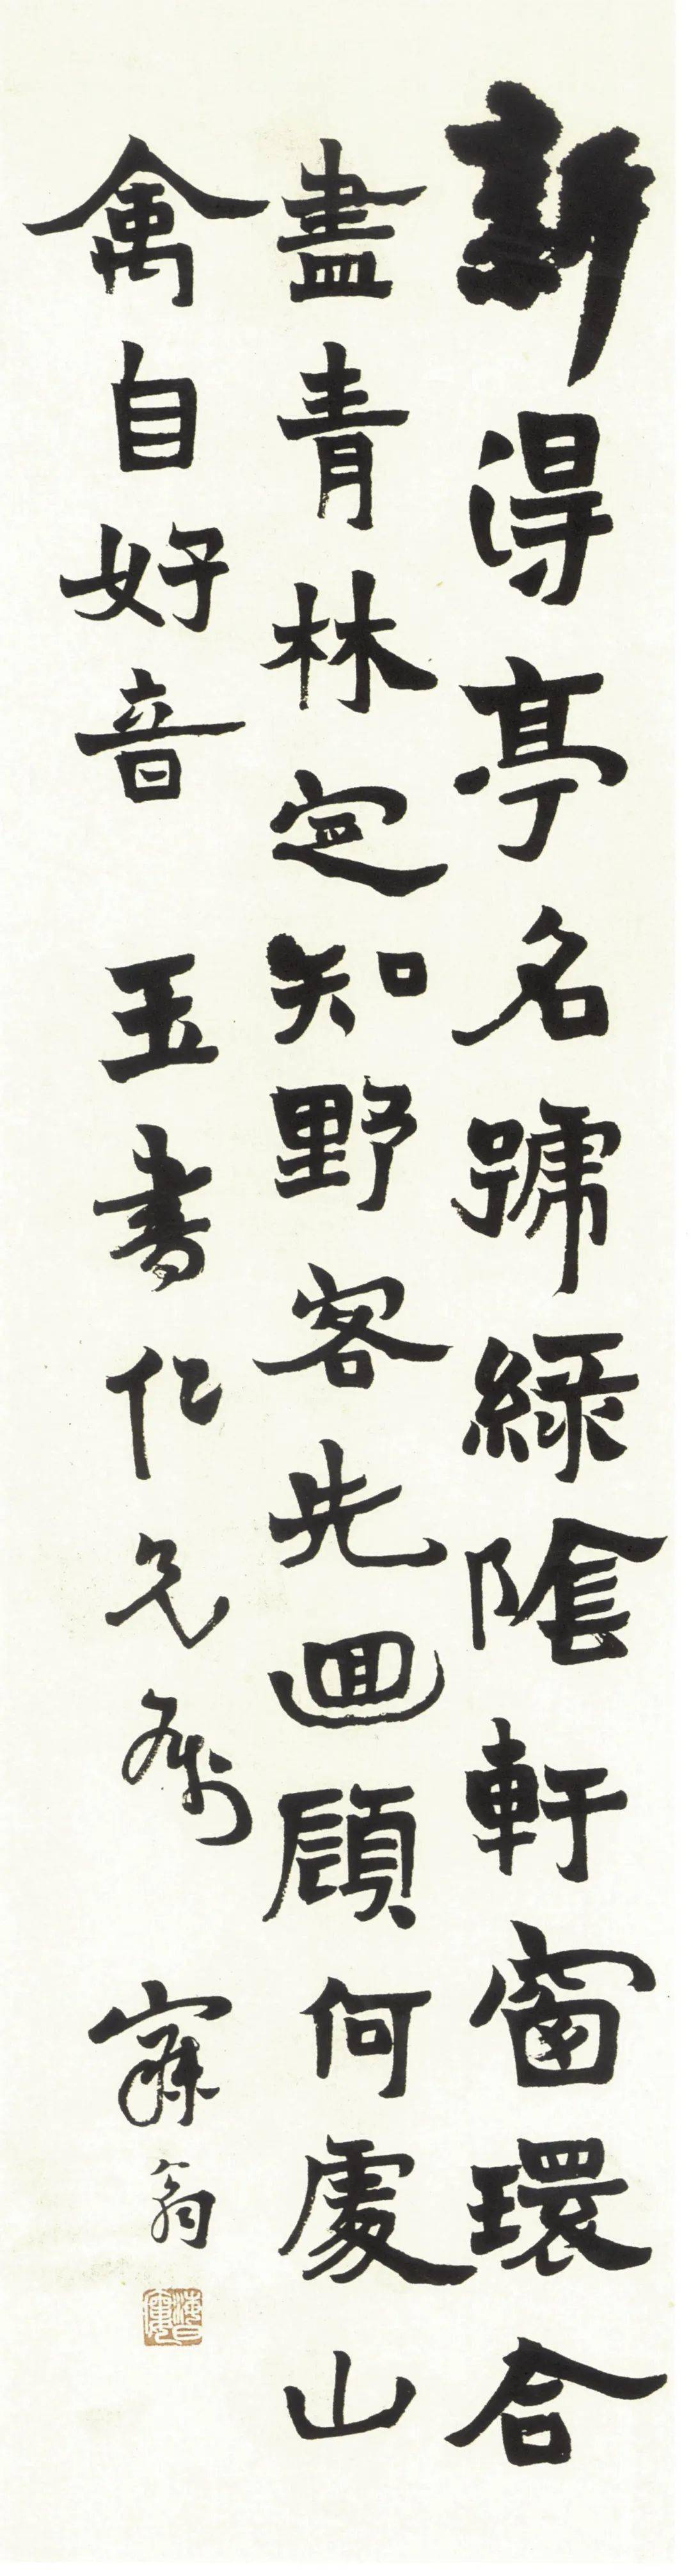 新淂亭名號綠陰軒窗環合
盡青林定知野客先迴顧何處山
禽自好音 玉書仁兄屬 寐翁
海日樓